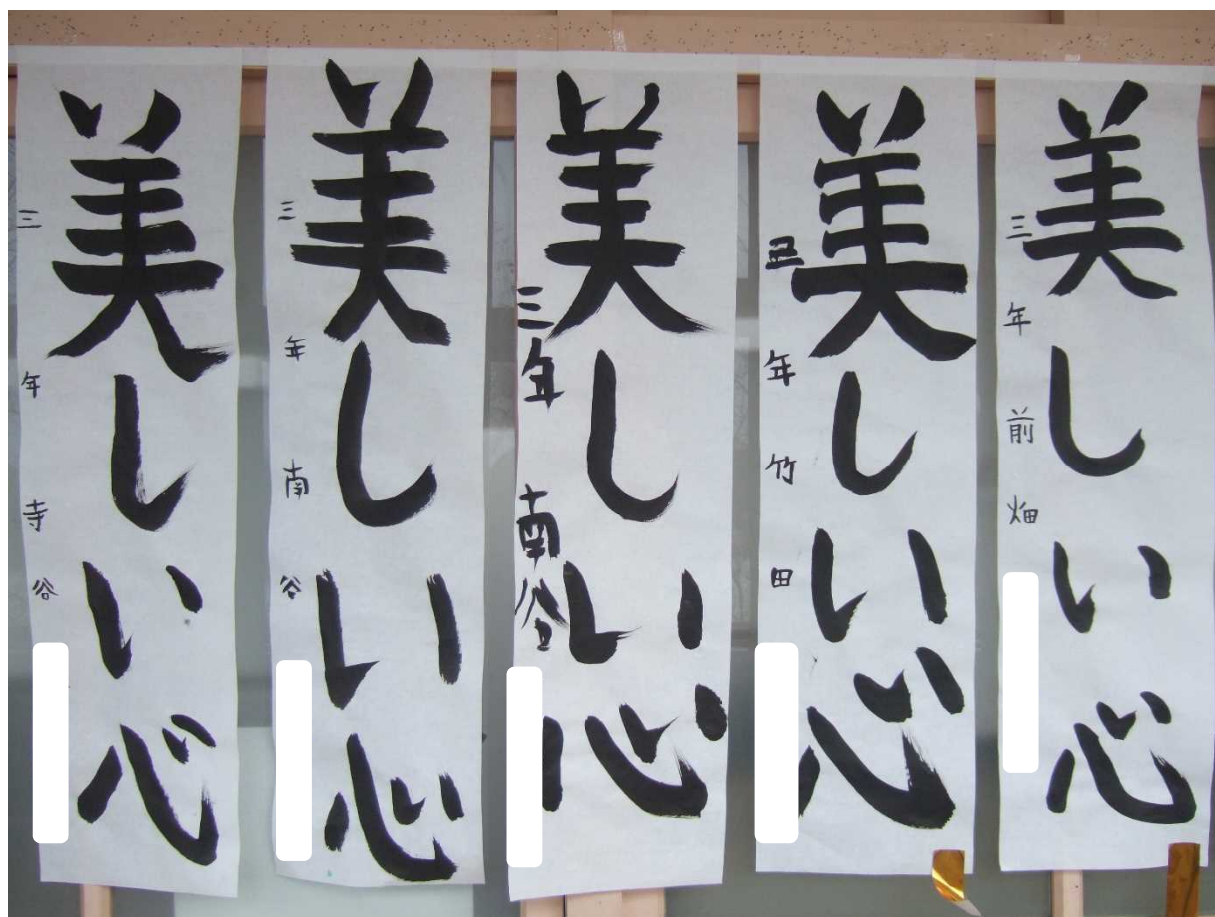 美しい心
三年 前畑
美しい心
三年 竹田
美しい心
三年 南谷
美しい心
三年 南谷
美しい心
三年 寺谷